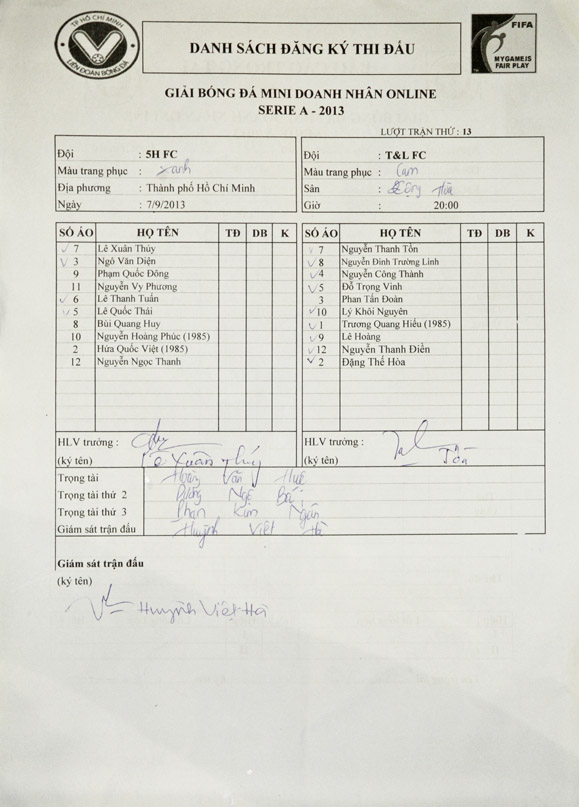 TP HỒ CHÍ MINH
LIÊN ĐOÀN BÓNG ĐÁ
DANH SÁCH ĐĂNG KÝ THI ĐẤU
FIFA
MY GAME IS
FAIR PLAY
GIẢI BÓNG ĐÁ MINI DOANH NHÂN ONLINE
SERIE A - 2013
LƯỢT TRẬN THỨ : 13
Đội : 5H FC
Màu trang phục : Xanh
Địa phương : Thành phố Hồ Chí Minh
Ngày : 7/9/2013
Đội : T&L FC
Màu trang phục : Cam
Sân : Cộng Hòa
Giờ : 20:00
SỐ ÁO HỌ TÊN TĐ DB K
7 Lê Xuân Thúy
3 Ngô Văn Diện
9 Phạm Quốc Đông
11 Nguyễn Vy Phương
6 Lê Thanh Tuấn
5 Lê Quốc Thái
8 Bùi Quang Huy
10 Nguyễn Hoàng Phúc (1985)
2 Hứa Quốc Việt (1985)
12 Nguyễn Ngọc Thanh
HLV trưởng :
(ký tên) Lê Xuân Thúy
SỐ ÁO HỌ TÊN TĐ DB K
7 Nguyễn Thanh Tồn
8 Nguyễn Đình Trường Linh
4 Nguyễn Công Thành
5 Đỗ Trọng Vinh
3 Phan Tấn Đoàn
10 Lý Khôi Nguyên
1 Trương Quang Hiếu (1985)
9 Lê Hoàng
12 Nguyễn Thanh Điền
2 Đặng Thế Hòa
HLV trưởng :
(ký tên) Tồn
Trọng tài Hoàng Văn Huê
Trọng tài thứ 2 Ngọc
Trọng tài thứ 3 Phan Kim Ngân
Giám sát trận đấu Huỳnh Việt Hà
Giám sát trận đấu
(ký tên)
Huỳnh Việt Hà